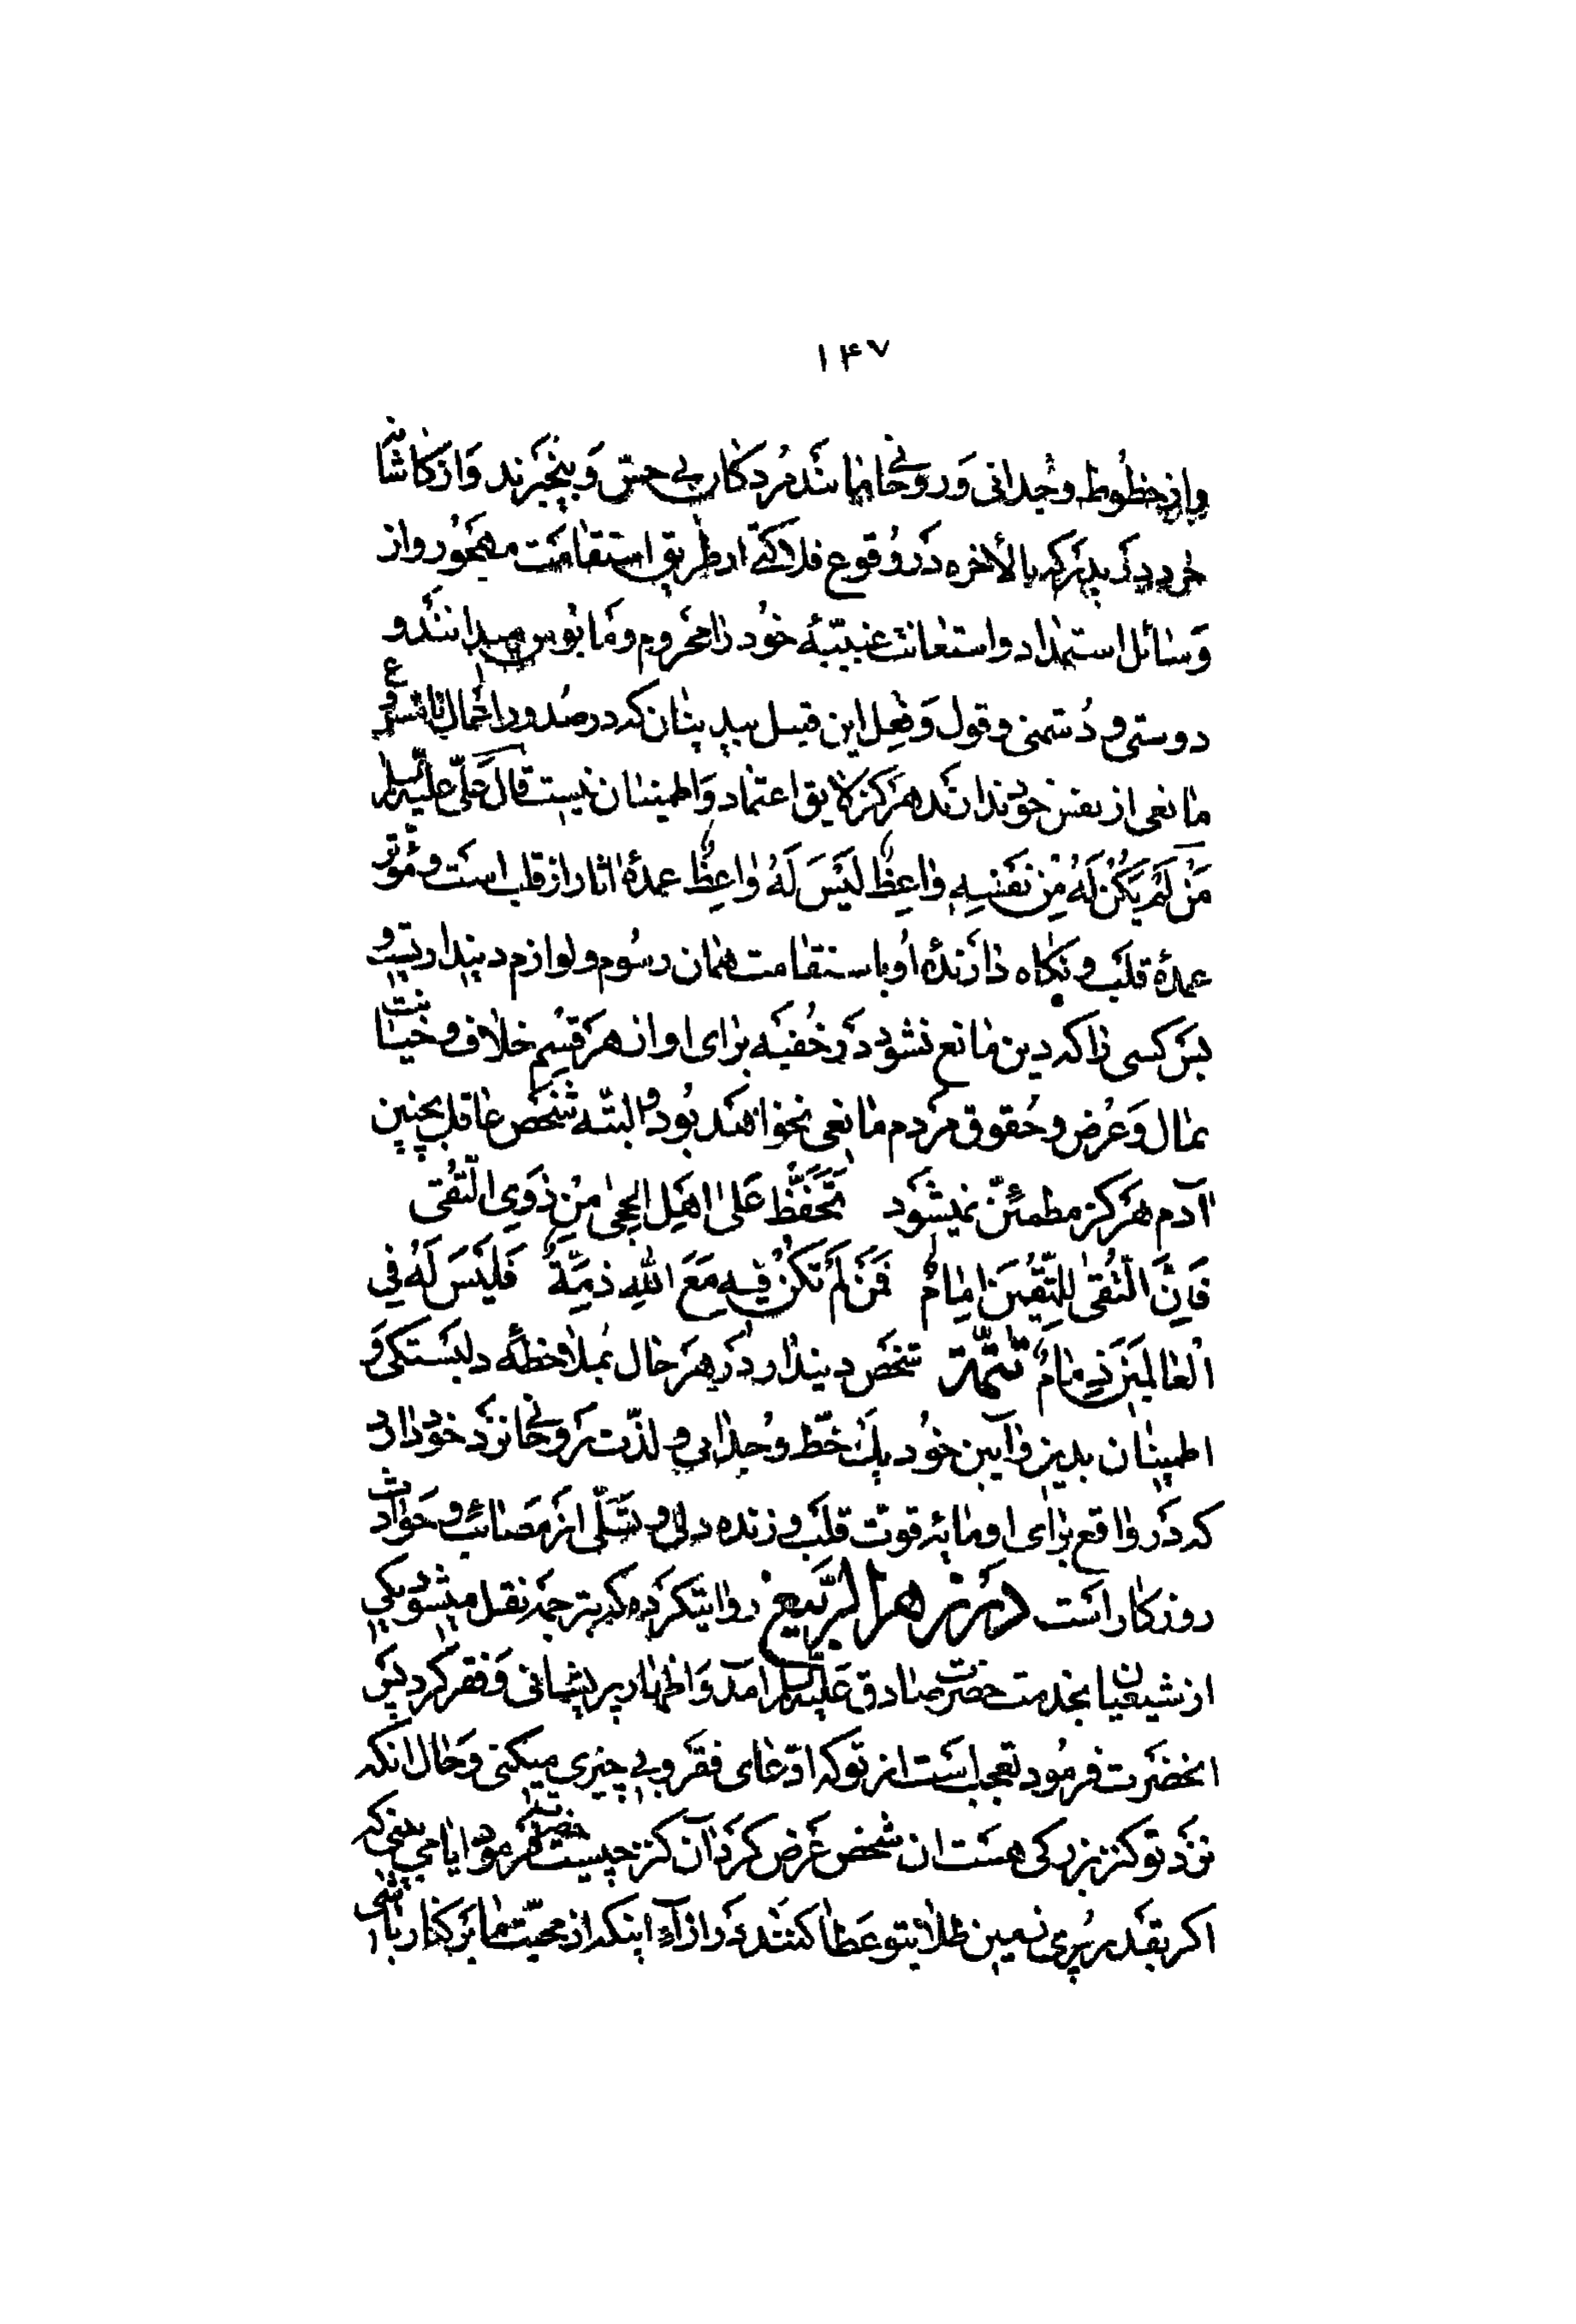 ۱۴۷
واز حظوظ وجدانی و روحانی مانند مردکار بی حس و بیخبرند و از کاشانه
خرد دد بدترکه بالأخره در وقوع فلاکتی از طریق استقامت مهجور و از
وسائل استمداد و استعانت غیبیّهٔ خود را محروم و مأیوس میدانند و
دوستی و دشمنی و قول و فعل این قبیل بیدینان که در صدور اعمال نامشروع
مانعی از نفس خود ندارند هرگز لایق اعتماد و اطمینان نیست قال علیّ علیه السلام
مَن لَم یَکُن لَهُ مِن نَفسِهِ واعِظٌ لَیسَ لَهُ واعِظٌ عمدهٔ اثار از قلب است و مؤثر
عمدهٔ قلب و نگاه دارندهٔ او با ستقامت همان رسوم و لوازم دینداریست و
بس کسی را که دین مانع نشود در خفیه برای او از هر قسم خلاف و خیانت
بمال و عرض و حقوق مردم مانعی نخواهد بود و البتّه شخص عاقل بچنین
آدم هرگز مطمئن نمیشود تَحَفَّظ عَلیٰ اهَلِ الحِجیٰ مِن ذَوِی التُّقی
فَاِنَّ التُّقیٰ لِلمُتَّقینَ اِمامٌ فَمَن لَم تَکُن فیهِ مَعَ اللهِ ذِمَّةٌ فَلَیسَ لَهُ فی
العالَمینَ ذِمامٌ تتمّة شخص دیندار در هر حال بملاحظهٔ دلبستگی و
اطمینان بدین و آیین خود یک حظّ وجدانی و لذّت روحانی نزد خود دارد
که در واقع برای او مایهٔ قوت قلب و زنده دلی و تسلّی از مصائب و حوادث
روزگار است در زهر الربیع روایتکرده که بترجمه نقل میشود یکی
از شیعیان بخدمت حضرت صادق علیه السلام آمد و اظهار پریشانی و فقر کرد پس
انحضرت فرمود تعجب است از تو که ادّعای فقر و بی چیزی میکنی و حال انکه
نزد تو کنز بزرکی هست ان شخص عرض کرد آن کنز چیست حضرت فرمود ایا می بینی که
اکر بقدر پری زمین طلا بتو عطا کنند در ازاء اینکه از محبّت ما بر کنار باشی